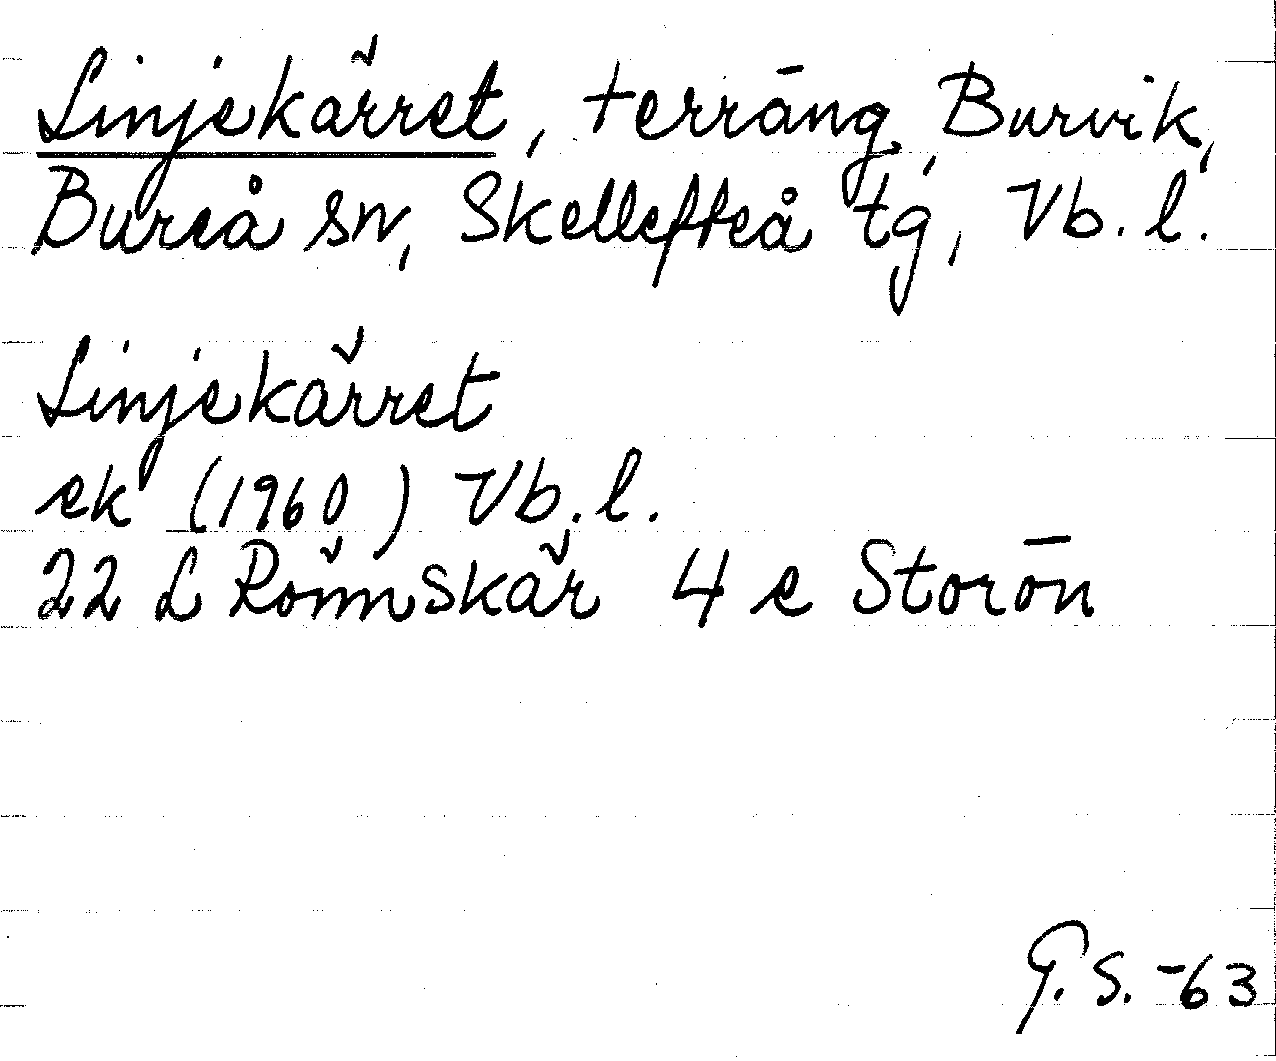 Linjekärret, terräng, Burvik,
Bureå sn, Skellefteå tg, Vb. l.
Linjekärret
ek (1960) Vb. l.
22 L Rönnskär 4 e Storön
G. S. -63